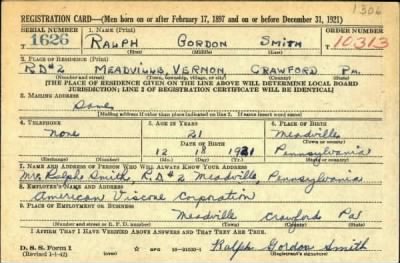 1306
REGISTRATION CARD—(Men born on or after February 17, 1897 and on or before December 31, 1921)
SERIAL NUMBER 1. NAME (Print) ORDER NUMBER
1626 RALPH GORDON SMITH 10,313
(First) (Middle) (Last)
2. PLACE OF RESIDENCE (Print)
R.D.#2 MEADVILLE, VERNON CRAWFORD PA.
(Number and street) (Town, township, village, or city) (County) (State)
[THE PLACE OF RESIDENCE GIVEN ON THE LINE ABOVE WILL DETERMINE LOCAL BOARD
JURISDICTION; LINE 2 OF REGISTRATION CERTIFICATE WILL BE IDENTICAL]
3. MAILING ADDRESS
Same
[Mailing address if other than place indicated on line 2. If same insert word same]
4. TELEPHONE 5. AGE IN YEARS 6. PLACE OF BIRTH
None 21 Meadville
DATE OF BIRTH (Town or county)
12 18 1921 Pennsylvania
(Exchange) (Number) (Mo.) (Day) (Yr.) (State or country)
7. NAME AND ADDRESS OF PERSON WHO WILL ALWAYS KNOW YOUR ADDRESS
Mrs. Ralph Smith, R.D.#2 Meadville, Pennsylvania
8. EMPLOYER'S NAME AND ADDRESS
American Viscose Corporation
9. PLACE OF EMPLOYMENT OR BUSINESS
Meadville Crawford Pa
(Number and street or R. F. D. number) (Town) (County) (State)
I AFFIRM THAT I HAVE VERIFIED ABOVE ANSWERS AND THAT THEY ARE TRUE.
D. S. S. Form 1
(Revised 1-1-42) Ralph Gordon Smith
(Registrant's signature)